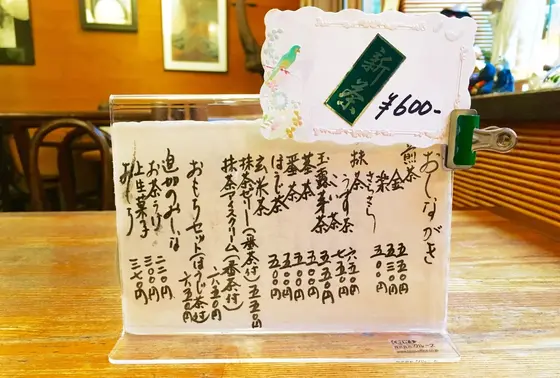 新茶
¥600-
おしながき
煎茶
金 五五〇円
さらさら 五三〇円
五〇〇円
抹茶
うす茶 六五〇円
玉露
芽茶 五五〇円
茎茶 五〇〇円
番茶 五〇〇円
ほうじ茶 五〇〇円
玄米茶 五〇〇円
抹茶ゼリー(番茶付) 五五〇円
抹茶アイスクリーム(番茶付) 六五〇円
おもちセット(ほうじ茶付) 六五〇円
追加のみしな
お茶うけ
上生菓子 三〇〇円